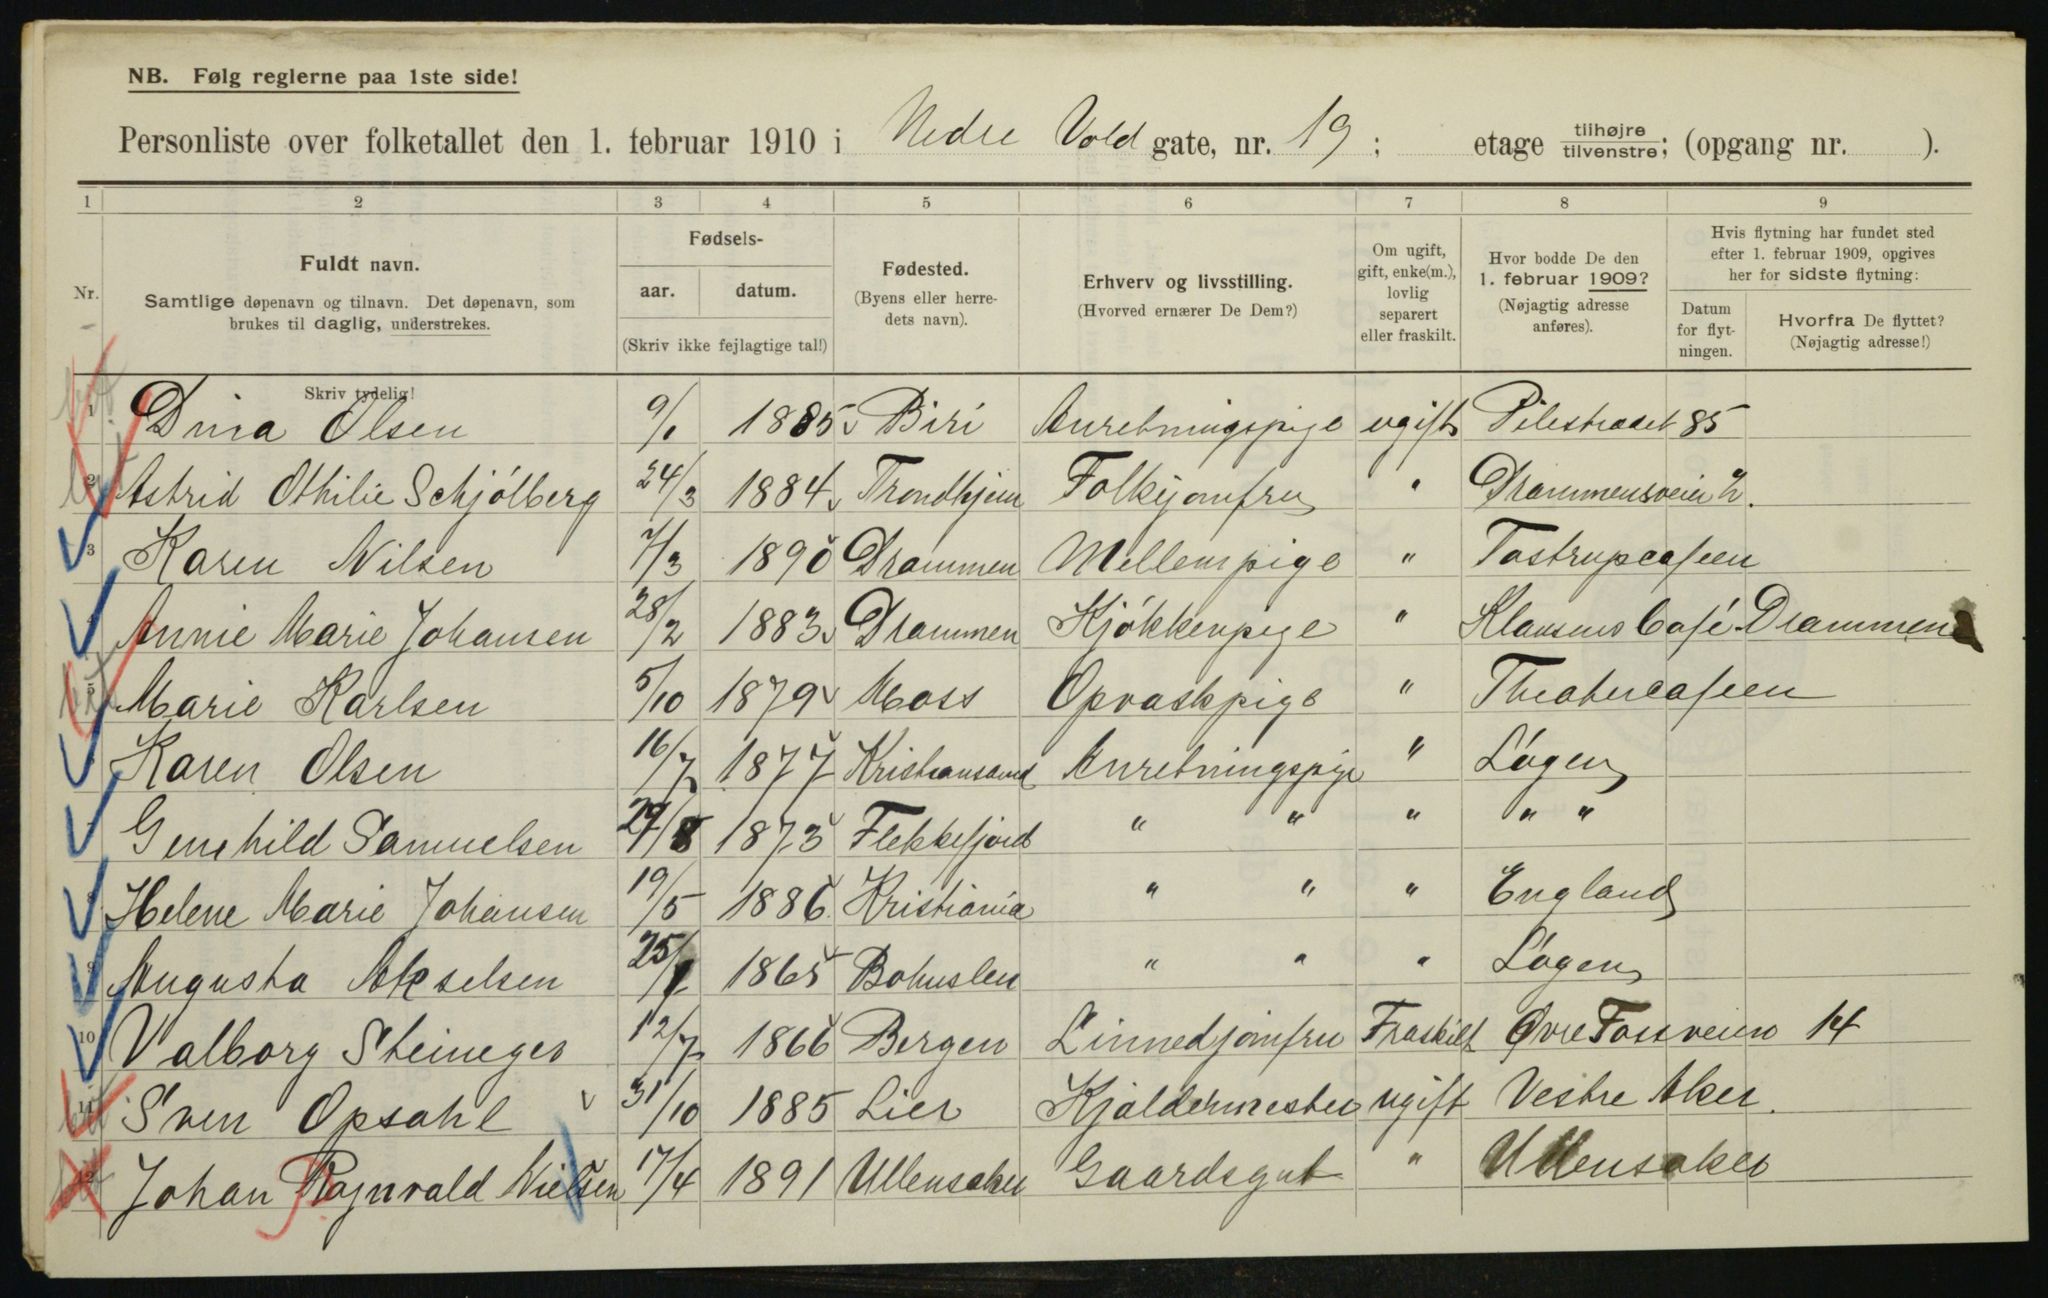 NB. Følg reglerne paa 1ste side!
Personliste over folketallet den 1. februar 1910 i Nedre Vold gate, nr. 19; etage tilhøjre/tilvenstre; (opgang nr. ).
1 2 3 4 5 6 7 8 9
Nr.
Fuldt navn.
Samtlige døpenavn og tilnavn. Det døpenavn, som
brukes til daglig, understrekes.
Skriv tydelig!
Fødsels-
aar. datum.
(Skriv ikke fejlagtige tal!)
Fødested.
(Byens eller herre-
dets navn).
Erhverv og livsstilling.
(Hvorved ernærer De Dem?)
Om ugift,
gift, enke(m.),
lovlig
separert
eller fraskilt.
Hvor bodde De den
1. februar 1909?
(Nøjagtig adresse
anføres).
Hvis flytning har fundet sted
efter 1. februar 1909, opgives
her for sidste flytning:
Datum
for flyt-
ningen.
Hvorfra De flyttet?
(Nøjagtig adresse!)
1 Dina Olsen 9/1 1885 Biri Anretningspige ugift Pilestrædet 85
2 Astrid Othilie Schjölberg 24/3 1884 Trondhjem Folkejomfru " Drammensveien 2.
3 Karen Nilsen 7/3 1890 Drammen Mellempige " Tostrupcafeen
4 Annie Marie Johansen 28/2 1883 Drammen Kjökkenpige " Klausens Café Drammen
5 Marie Karlsen 5/10 1879 Moss Opvaskpige " Theatercafeen
Karen Olsen 16/7 1877 Kristiansand Anretningspige " Logen
7 Gunhild Samuelsen 29/8 1873 Flekkefjord " " " " "
8 Helene Marie Johansen 19/5 1886 Kristiania " " " England
9 Augusta Akselsen 25/1 1865 Bohuslen " " " Logen
10 Valborg Steineger 12/7 1866 Bergen Linnedjomfru Fraskilt Øvre Fossveien 14
11 Sven Opsahl 31/10 1885 Lier Kjældermester ugift Vestre Aker.
12 Johan Ragnvald Nielsen 17/4 1891 Ullensaker Gaardsgut " Ullensaker